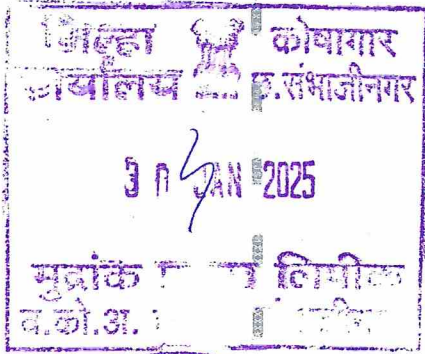 जिल्हा कोषागार
कार्यालय छ.संभाजीनगर
30 JAN 2025
मुद्रांक लिपीक
व.को.अ.